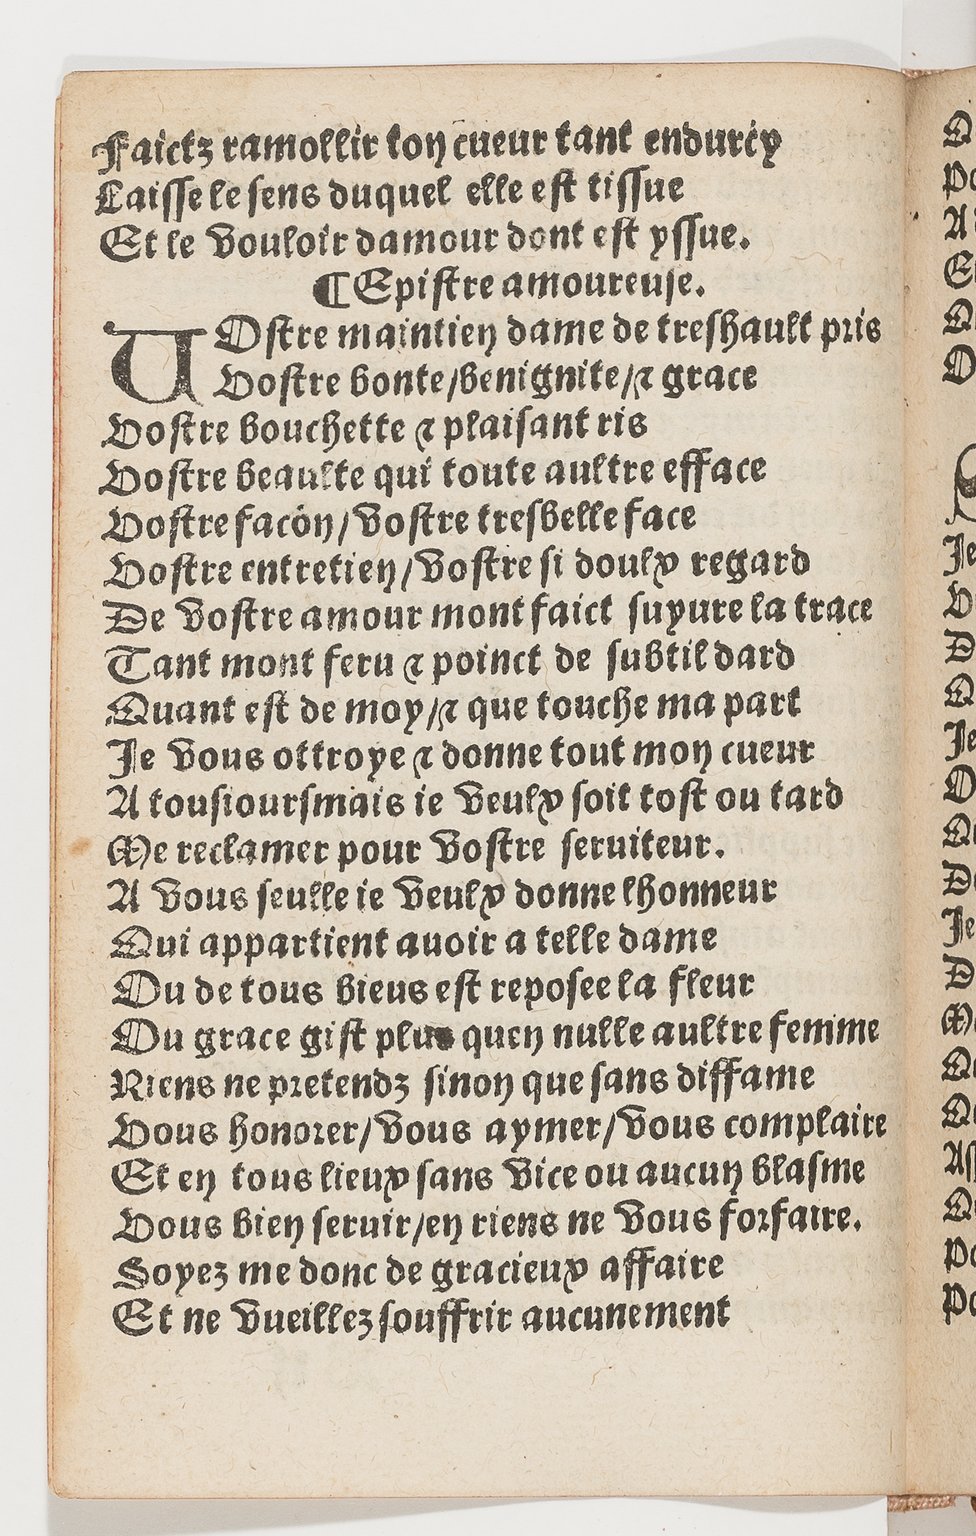 Faictz ramollir ton cueur tant endurcy
Laisse le sens duquel elle est tissue
Et le vouloir damour dont est yssue.
¶Epistre amoureuse.
VOstre maintien dame de treshault pris
Vostre bonte/benignite/⁊ grace
Vostre bouchette ⁊ plaisant ris
Vostre beaulte qui toute aultre efface
Vostre facon/vostre tresbelle face
Vostre entretien/vostre si doulx regard
De vostre amour mont faict suyure la trace
Tant mont feru ⁊ poinct de subtil dard
Quant est de moy/⁊ que touche ma part
Je vous ottroye ⁊ donne tout mon cueur
A tousioursmais ie veulx soit tost ou tard
Me reclamer pour vostre seruiteur.
A vous seulle ie veulx donne lhonneur
Qui appartient auoir a telle dame
Ou de tous biens est reposee la fleur
Ou grace gist plus quen nulle aultre femme
Riens ne pretendz sinon que sans diffame
Vous honorer/vous aymer/vous complaire
Et en tous lieux sans vice ou aucun blasme
Vous bien seruir/en riens ne vous forfaire.
Soyez me donc de gracieux affaire
Et ne vueillez souffrir aucunement